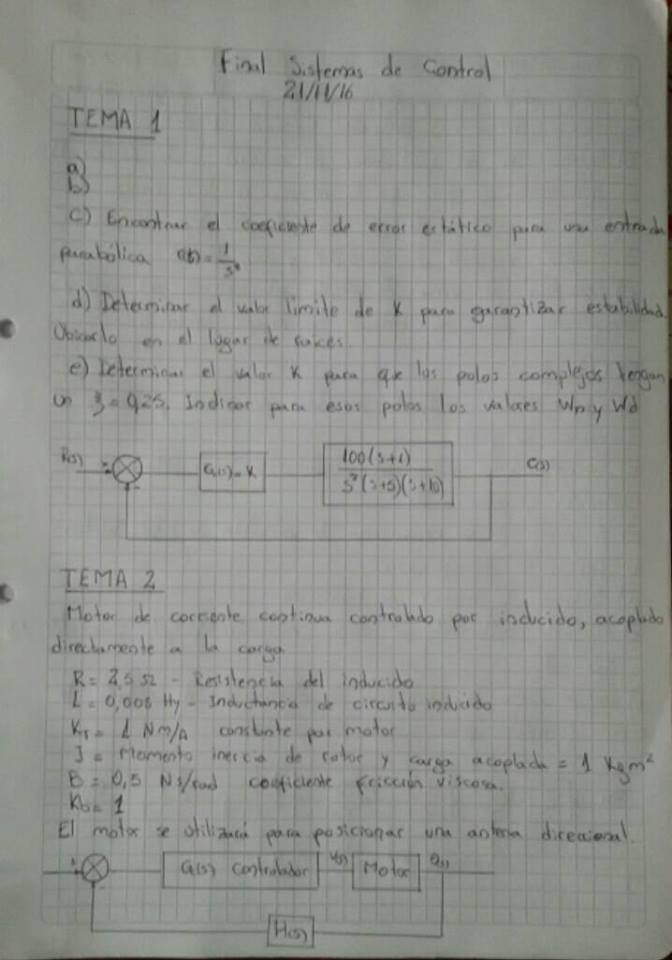 Final Sistemas de Control
21/11/16
TEMA 1
a)
b)
c) Encontrar el coeficiente de error estático para una entrada
parabólica
d) Determinar el valor limite de K para garantizar estabilidad.
Ubicarlo en el lugar de raices.
e) Determinar el valor K para que los polos complejos tengan
un ξ = 0,25. Indicar para esos polos los valores Wn y Wd
R(s) G(s) = K 100(s+1) C(s)
s²(s+5)(s+10)
TEMA 2
Motor de corriente continua controlado por inducido, acoplado
directamente a la carga
R = 2,5 Ω - Resistencia del inducido
L = 0,008 Hy - Inductancia de circuito inducido
= 1 Nm/A constante par motor
J = Momento inercia de rotor y carga acoplada = 1 Kgm²
B = 0,5 Ns/rad coeficiente fricción viscosa.
Kb = 1
El motor se utilizará para posicionar una antena direccional.
G(s) Controlador V(s) Motor
H(s)